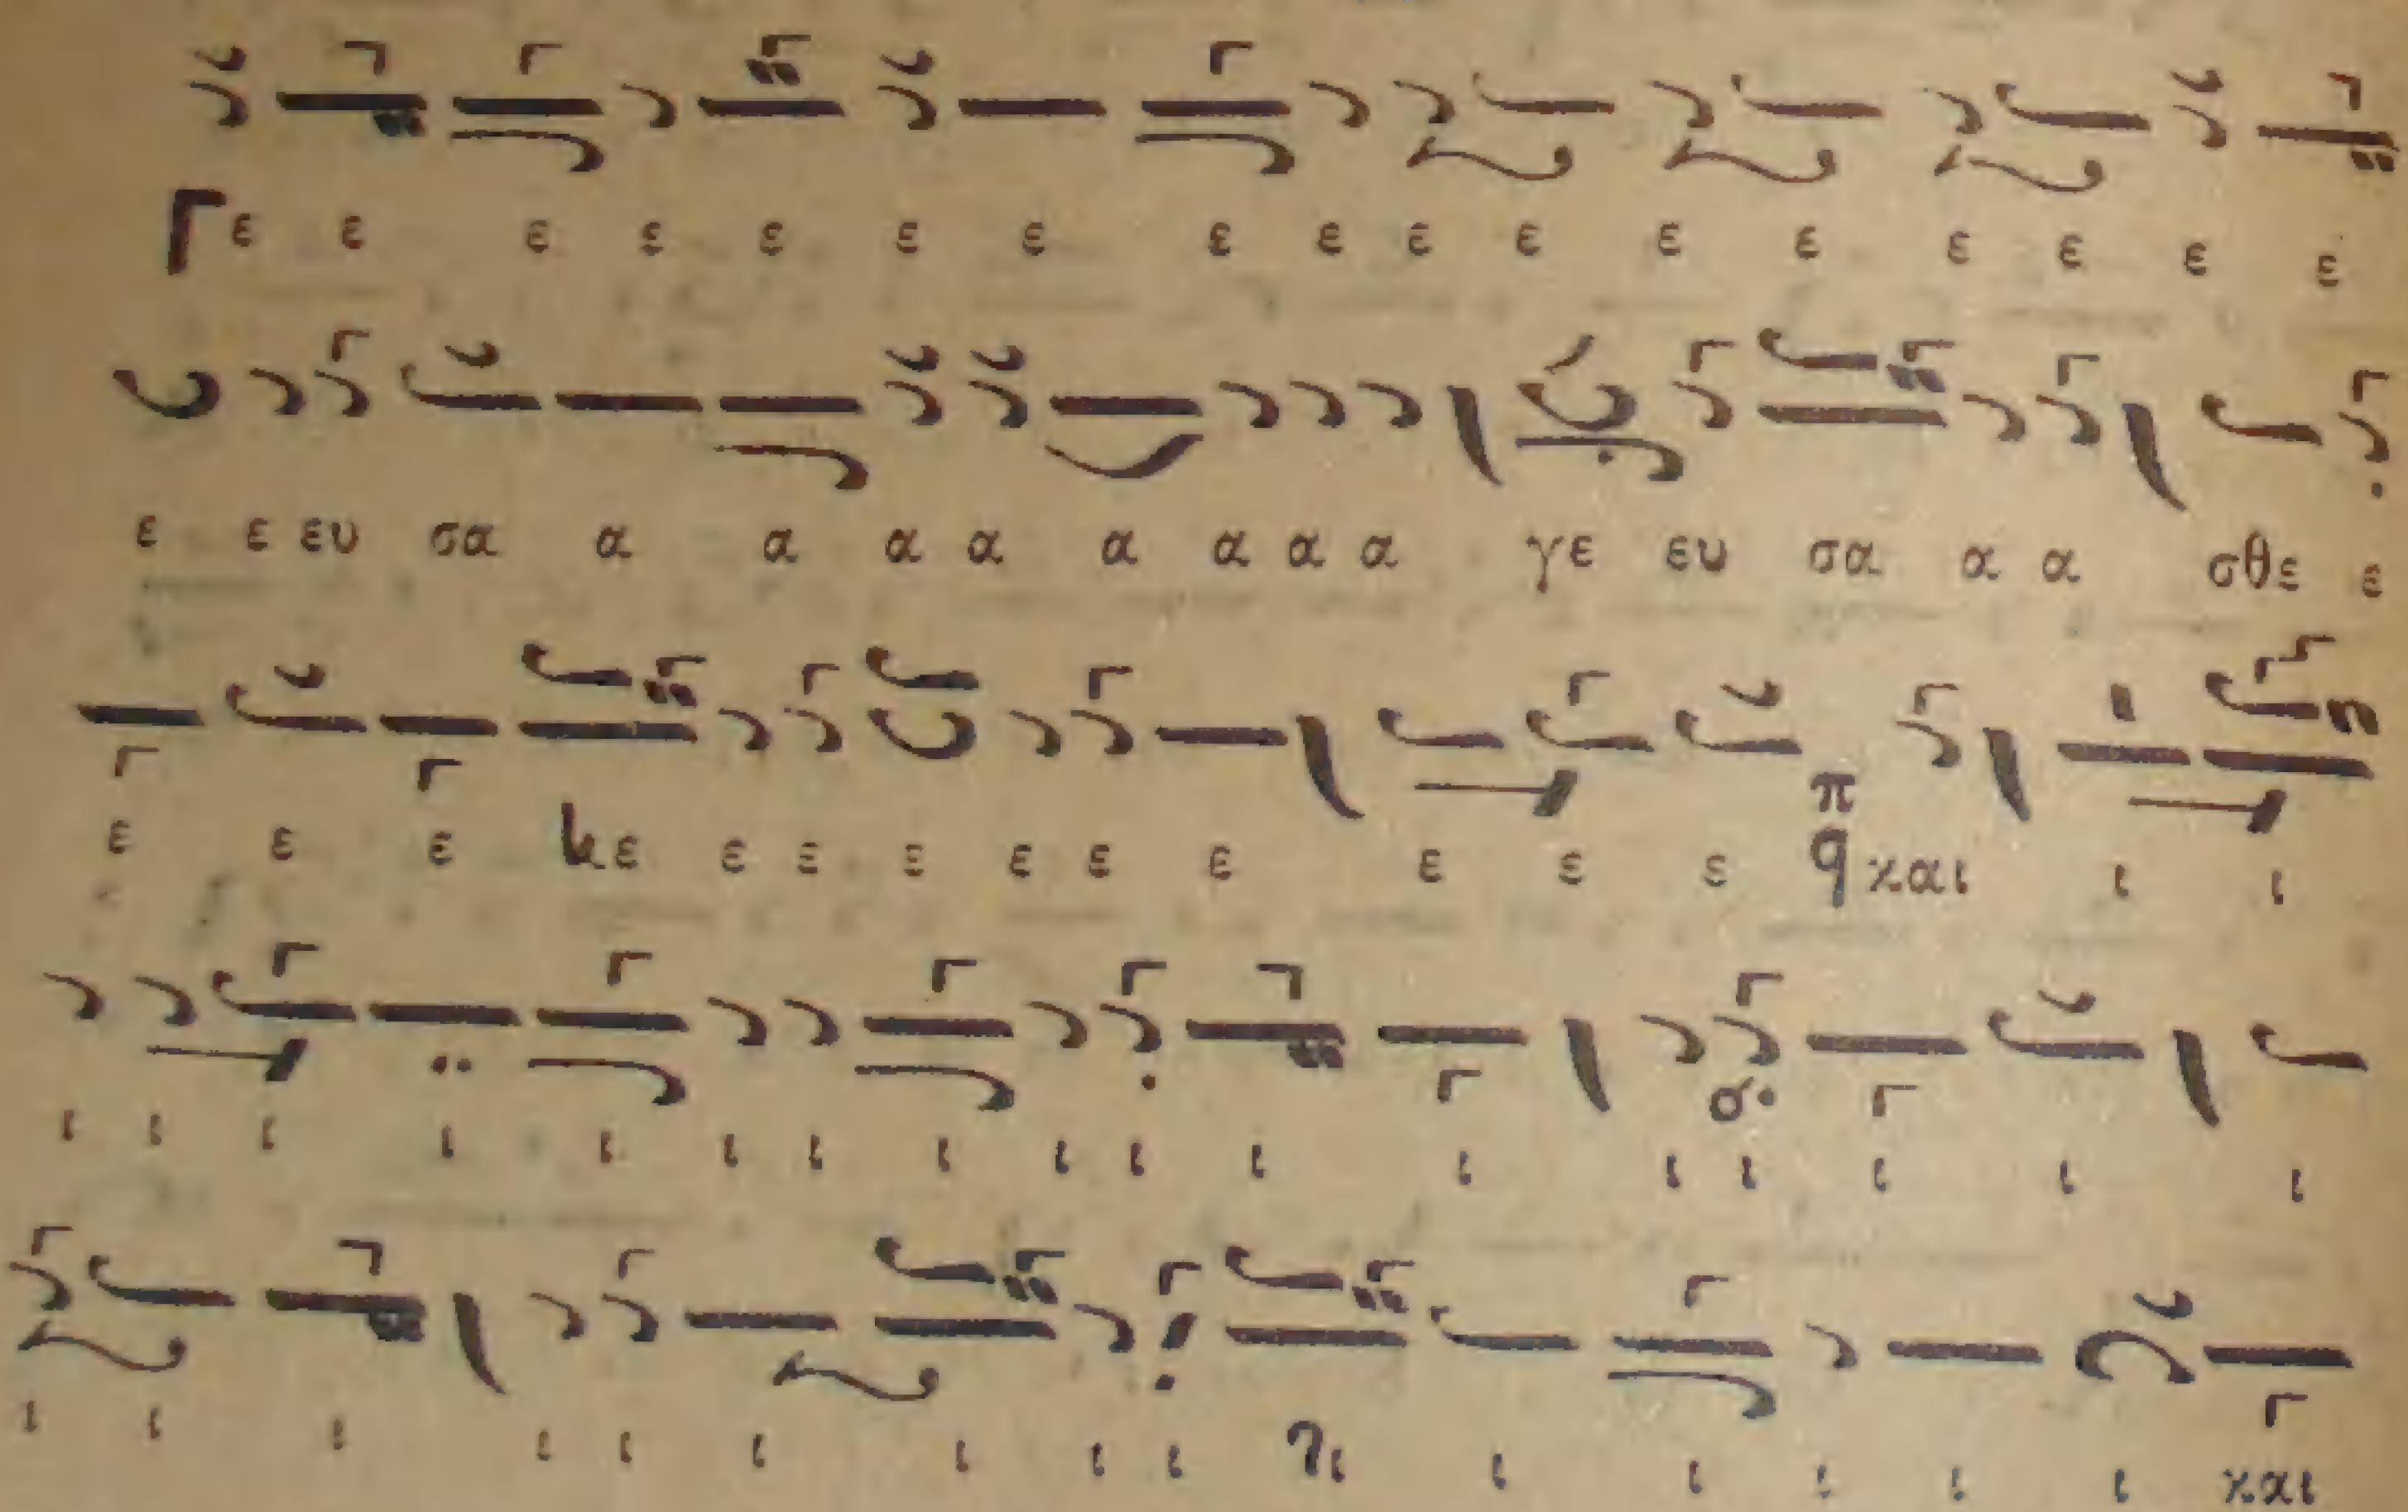 Γε ε ε ε ε ε ε ε ε ε ε ε ε ε ε ε ε
ε ε ευ σα α α α α α α α α γε ευ σα α α σθε ε
ε ε ε κε ε ε ε ε ε ε ε ε ε π q και ι ι
ι ι ι ι ι ι ι ι ι ι ι ι ι ι ι ι ι
ι ι ι ι ι ι ι ι ι ι ι ι ι ι ι και